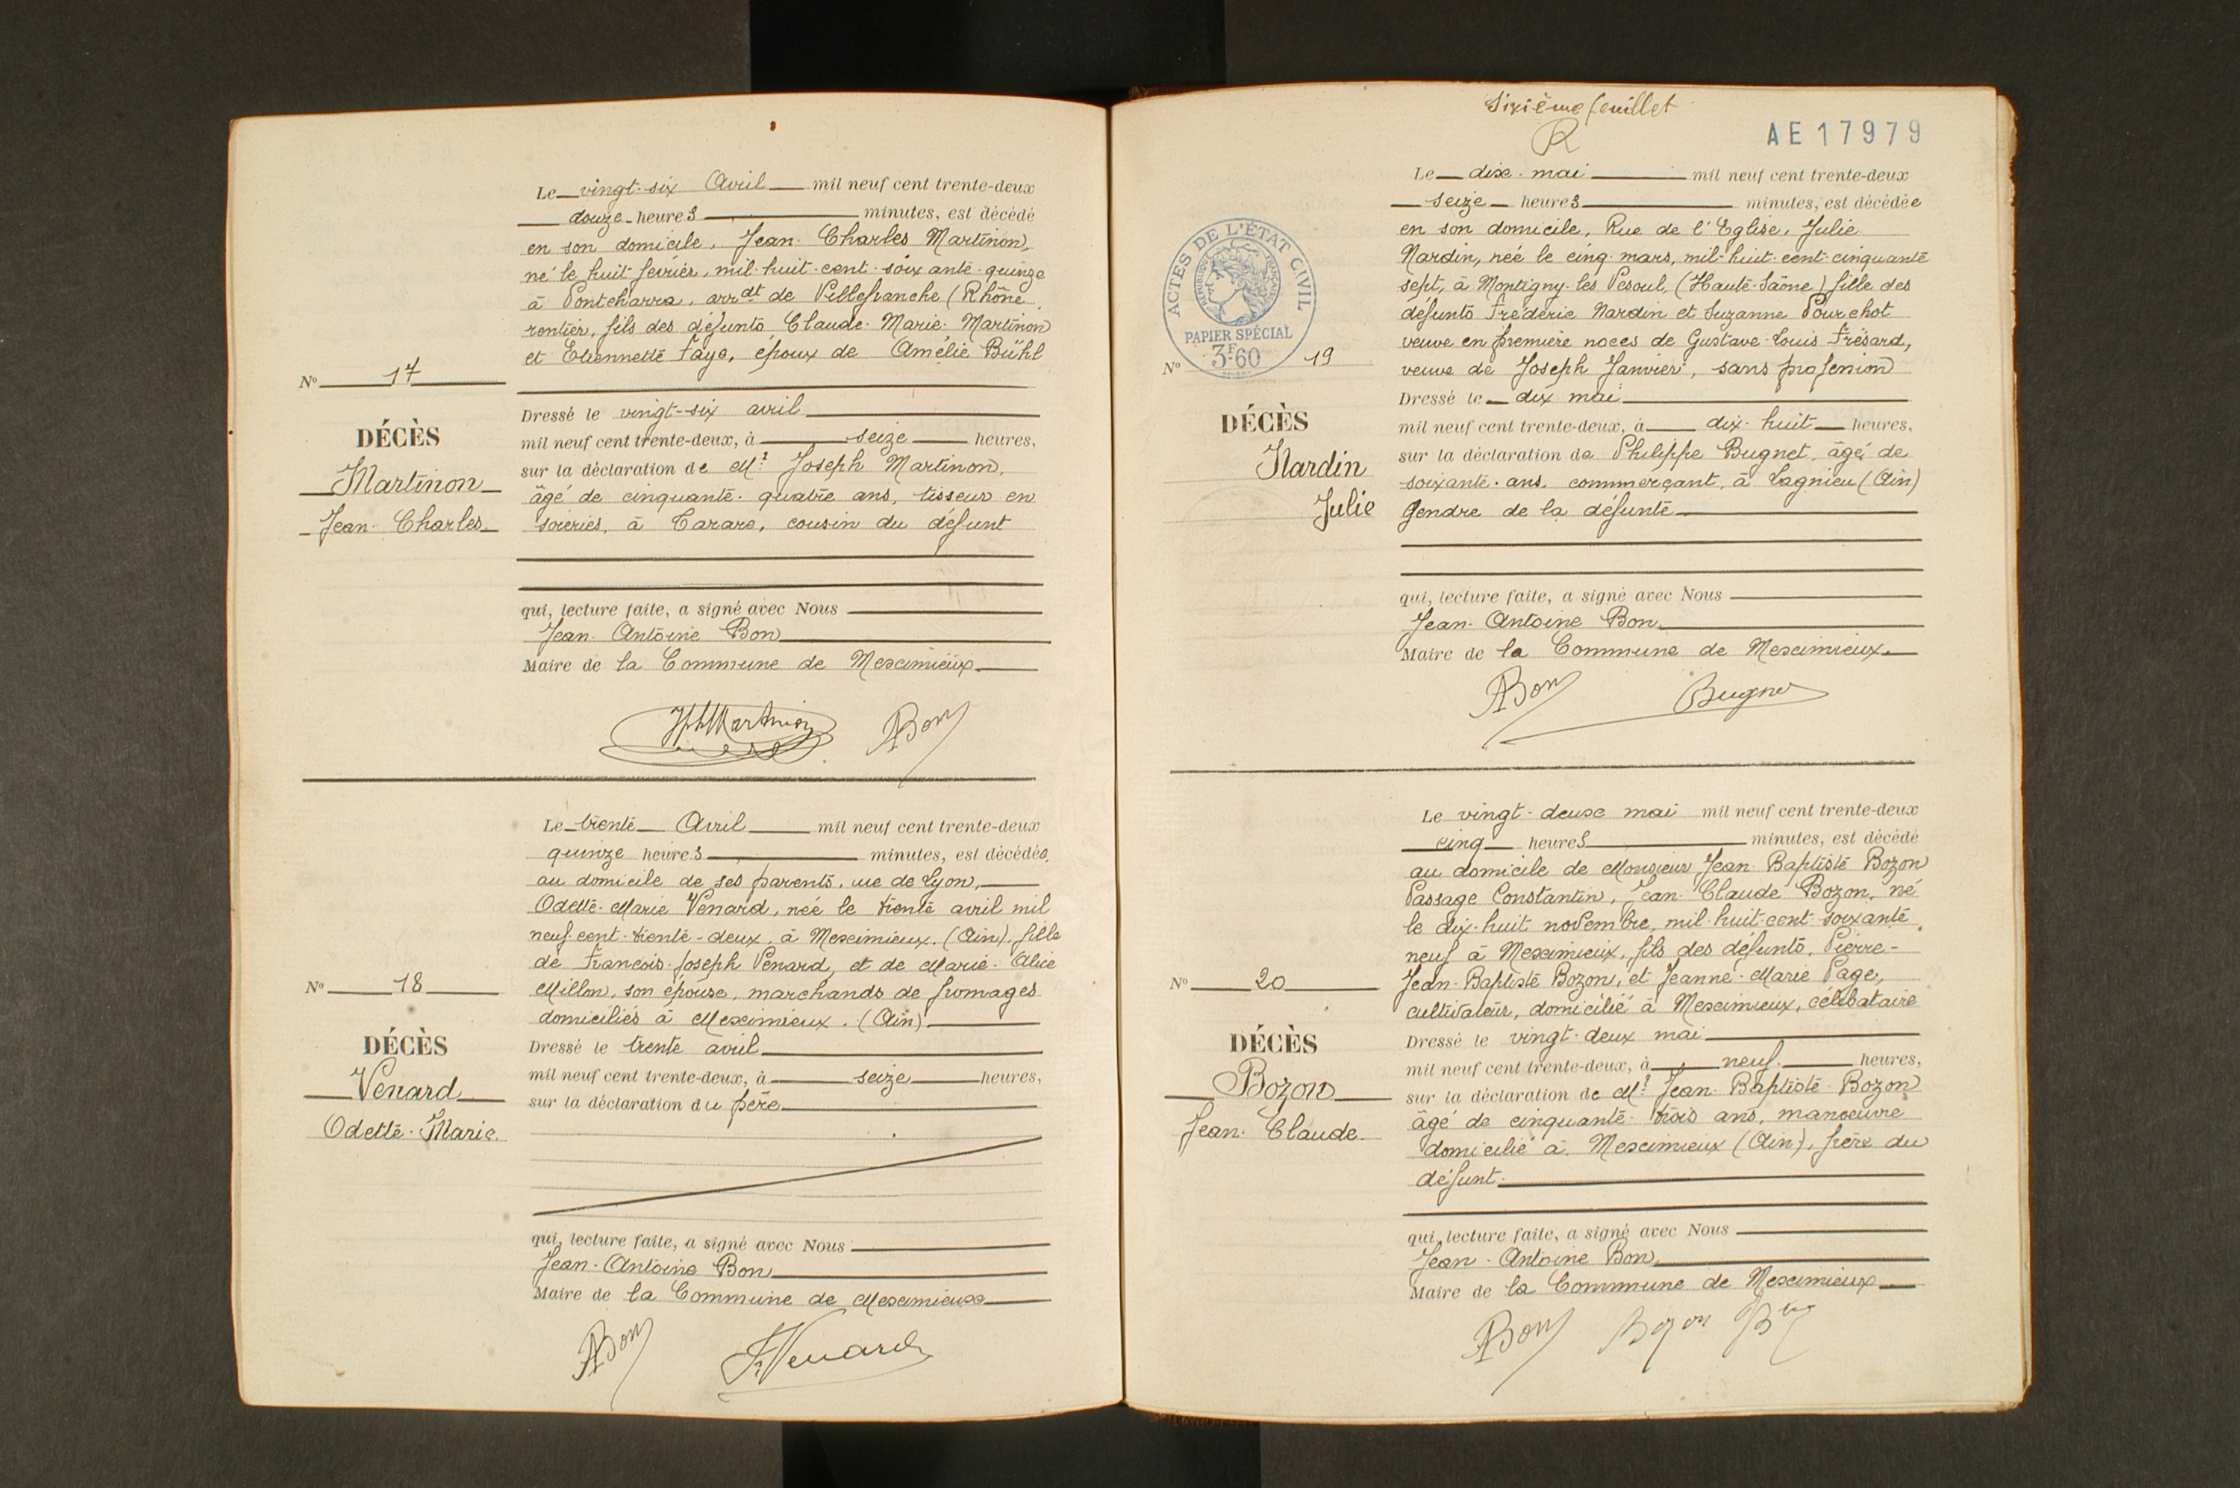 Le vingt-six Avril mil neuf cent trente-deux
douze heures minutes, est décédé
en son domicile, Jean Charles Martinon,
né le huit février, mil-huit-cent-soixante-quinze
à Pontcharra, arrdt de Villefranche (Rhône
rentier, fils des défunts Claude-Marie Martinon
et Etiennette Faye, époux de Amélie Bühl
No 17
DÉCÈS
Martinon
Jean-Charles
Dressé le vingt-six avril
mil neuf cent trente-deux, à seize heures,
sur la déclaration de Mr Joseph Martinon,
âgé de cinquante-quatre ans, tisseur en
soieries, à Tarare, cousin du défunt
qui, lecture faite, a signé avec Nous
Jean-Antoine Bon
Maire de la Commune de Meximieux
Jph Martinon ABon
Le trente Avril mil neuf cent trente-deux
quinze heures minutes, est décédée,
au domicile de ses parents, rue de Lyon,
Odette-Marie Venard, née le trente avril mil
neuf-cent-trente-deux, à Meximieux. (Ain), fille
de Francois-Joseph Venard, et de Marie-Alice
Millon, son épouse, marchands de fromages
domiciliés à Meximieux. (Ain)
No 18
DÉCÈS
Venard
Odette-Marie.
Dressé le trente avril
mil neuf cent trente-deux, à seize heures,
sur la déclaration du père
qui, lecture faite, a signé avec Nous
Jean-Antoine Bon
Maire de la Commune de Meximieux
ABon F.Venard
Sixième feuillet
R
AE17979
Le dix-mai mil neuf cent trente-deux
seize heures minutes, est décédée
en son domicile, Rue de l'Eglise, Julie
Nardin, née le cinq mars, mil-huit-cent-cinquante
sept, à Montigny-les Vesoul, (Haute-Saône) fille des
défunts Frédéric Nardin et Suzanne Pourchot
veuve en première noces de Gustave-Louis Frésard,
veuve de Joseph Janvier, sans profession
ACTES DE L'ÉTAT CIVIL
RÉPUBLIQUE FRANÇAISE
PAPIER SPÉCIAL
3F60
No 19
DÉCÈS
Nardin
Julie
Dressé le dix mai
mil neuf cent trente-deux, à dix-huit heures,
sur la déclaration de Philippe Bugnet, âgé de
soixante-ans, commerçant, à Lagnieu (Ain)
Gendre de la défunte
qui, lecture faite, a signé avec Nous
Jean-Antoine Bon
Maire de la Commune de Meximieux.
ABon Bugnet
Le vingt-deux mai mil neuf cent trente-deux
cinq heures minutes, est décédé
au domicile de Monsieur Jean-Baptiste Bozon
Passage Constantin, Jean-Claude Bozon, né
le dix-huit novembre, mil-huit-cent-soixante
neuf à Meximieux, fils des défunts, Pierre-
Jean-Baptiste Bozon, et Jeanne-Marie Page,
cultivateur, domicilié à Meximieux, célibataire
No 20
DÉCÈS
Bozon
Jean-Claude.
Dressé le vingt-deux mai
mil neuf cent trente-deux, à neuf heures,
sur la déclaration de Mr Jean-Baptiste Bozon
âgé de cinquante-trois ans, manoeuvre
domicilié à Meximieux (Ain), frère du
défunt.
qui, lecture faite, a signé avec Nous
Jean-Antoine Bon,
Maire de la Commune de Meximieux
ABon Bozon Bte